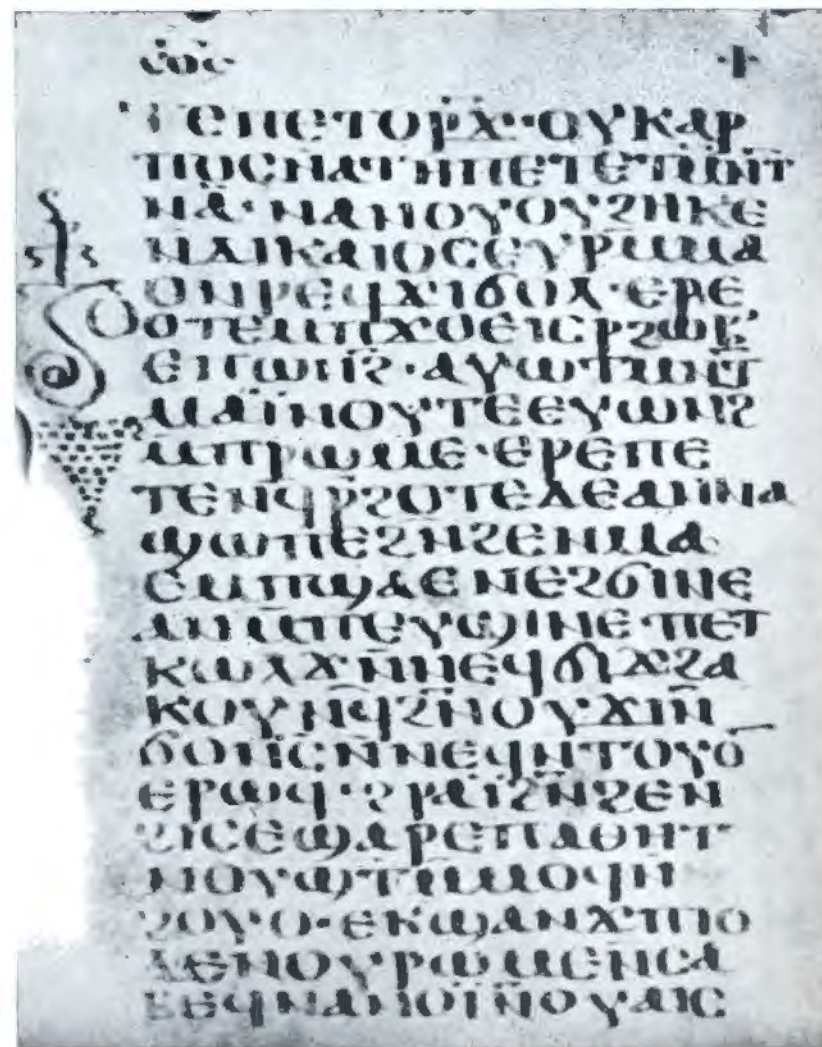 ϫⲉⲡⲉⲧⲟⲣϫ̅·ⲟⲩⲕⲁⲣ
ⲡⲟⲥⲛⲁⲧⲏⲡⲉⲧⲉⲧⲙⲛ̅ⲧ
ⲛⲁ·ⲛⲁⲛⲟⲩⲟⲩϩⲏⲕⲉ
ⲛⲇⲓⲕⲁⲓⲟⲥⲉⲩⲣⲱⲙⲁ
ⲟⲛⲣⲉϥϫⲓϭⲟⲗ·ⲉⲣⲉ
ⲑⲟⲧⲉⲙⲡϫⲟⲉⲓⲥⲣϩⲱⲃ
ⲉⲡⲱⲛϩ̅·ⲁⲩⲱⲧⲙⲛ̅ⲧ
ⲙⲁⲓ̈ⲛⲟⲩⲧⲉⲉⲩⲱⲛϩ
ⲙⲡⲣⲱⲙⲉ·ⲉⲣⲉⲡⲉ
ⲧⲉⲛϥⲣ̅ϩⲟⲧⲉⲇⲉⲁⲛⲛⲁ
ϣⲱⲡⲉϩⲛϩⲉⲛⲙⲁ
ⲉⲙⲡϣⲁⲉⲛⲉϩϭⲓⲛⲉ
ⲁⲛⲙ̅ⲡⲉⲩϣⲓⲛⲉ·ⲡⲉⲧ
ⲕⲱⲗϫ̅ⲛ̅ⲛⲉϥϭⲓϫϩⲁ
ⲕⲟⲩⲛϥ̅ϩⲛ̅ⲟⲩϫⲓⲛ̅
ϭⲟⲛⲥ̅ⲛ̅ⲛⲉϥⲛⲧⲟⲩⲟ
ⲉⲣⲱϥ·ϩⲣⲁⲓ̈ϩⲛ̅ϩⲉⲛ
ϩⲓⲥⲉϣⲁⲣⲉⲡⲁⲑⲏⲧ
ⲛⲟⲩϣⲧ̅ⲙ̅ⲙⲟϥⲛ̅
ϩⲟⲩⲟ·ⲉⲕϣⲁⲛϫⲡⲓⲟ
ⲇⲉⲛⲟⲩⲣⲱⲙⲉⲛ̅ⲥⲁ
ⲃⲉϥⲛⲁⲛⲟⲓ̈ⲛⲟⲩⲁⲓⲥ